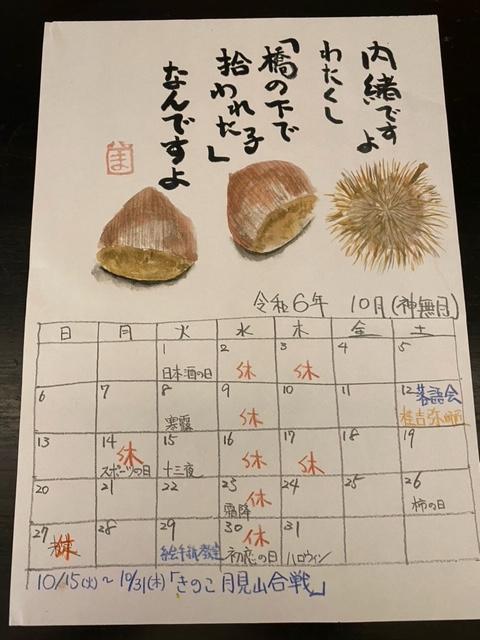 内緒ですよ
わたくし
「橋の下で
拾われた子」
なんですよ
ま
令和6年 10月(神無月)
日 月 火 水 木 金 土
1 2 3 4 5
日本酒の日 休 休
6 7 8 9 10 11 12 落語会
寒露 休 桂吉弥
13 14 15 16 17 18 19
休 休 休
スポーツの日 十三夜
20 21 22 23 24 25 26
休
霜降 柿の日
27 28 29 30 31
休 休
絵手紙教室 初恋の日 ハロウィン
10/15(火)~10/31(木)「きのこ月見山合戦」